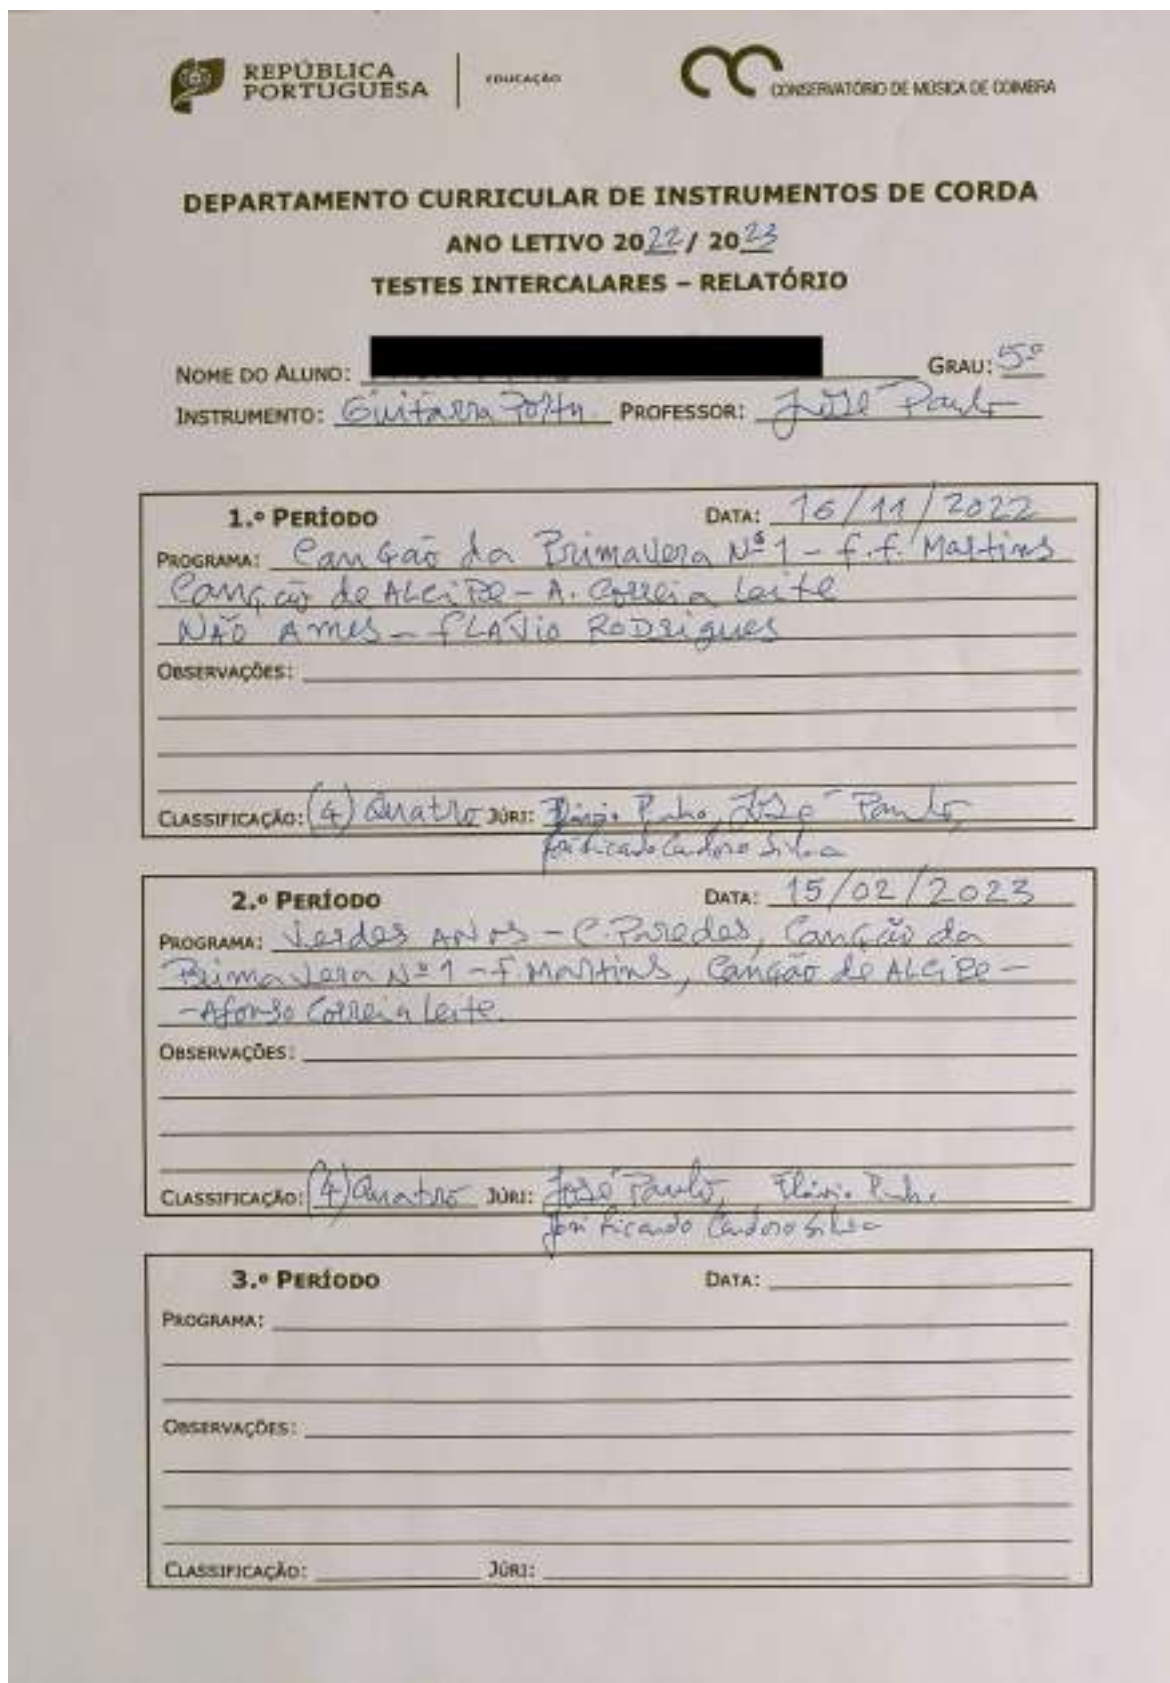 REPÚBLICA
PORTUGUESA
EDUCAÇÃO
CONSERVATÓRIO DE MÚSICA DE COIMBRA
DEPARTAMENTO CURRICULAR DE INSTRUMENTOS DE CORDA
ANO LETIVO 2022/ 2023
TESTES INTERCALARES – RELATÓRIO
NOME DO ALUNO: GRAU: 5º
INSTRUMENTO: Guitarra PROFESSOR: José Paulo
1.º PERÍODO DATA: 16/11/2022
PROGRAMA: Canção da Primavera Nº 1 - F.F. Martins
Canção de Alcipe - A. Correia Leite
NÃO AMES - FLAVIO RODRIGUES
OBSERVAÇÕES:
CLASSIFICAÇÃO: (4) Quatro JÚRI: Flávio Pinho, José Paulo,
José Ricardo Cardoso Silva
2.º PERÍODO DATA: 15/02/2023
PROGRAMA: Verdes ANOS - C. Paredes, Canção da
Primavera Nº 1 - F. Martins, Canção de Alcipe -
- Afonso Correia Leite.
OBSERVAÇÕES:
CLASSIFICAÇÃO: (4) Quatro JÚRI: José Paulo, Flávio Pinho,
José Ricardo Cardoso Silva
3.º PERÍODO DATA:
PROGRAMA:
OBSERVAÇÕES:
CLASSIFICAÇÃO: JÚRI: